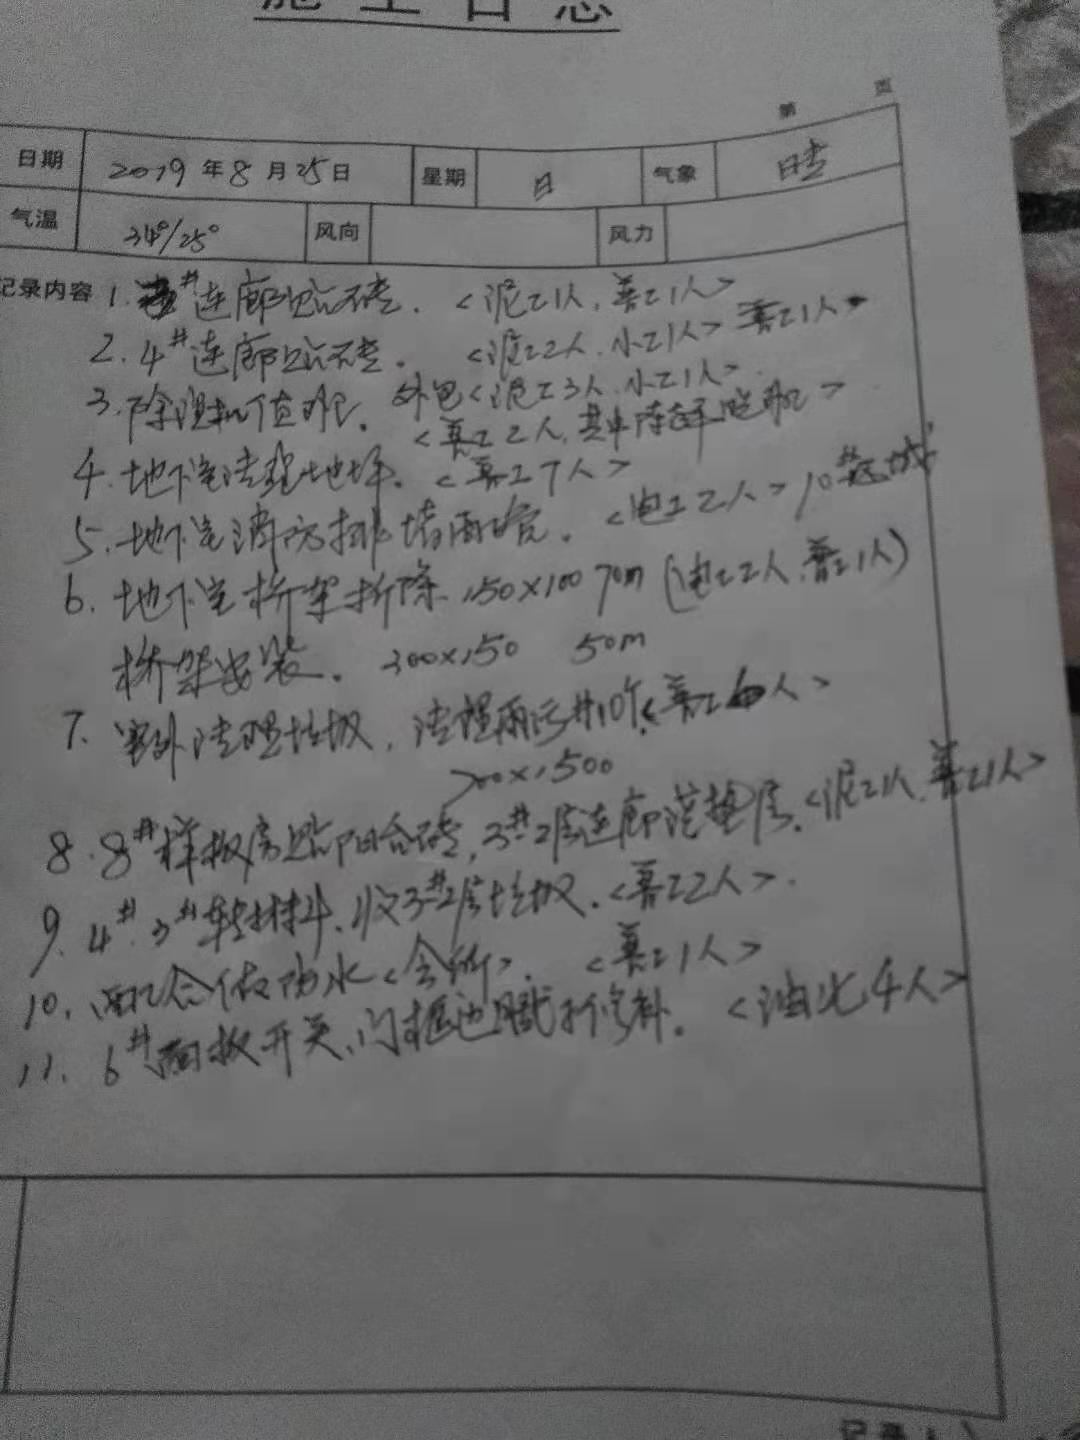 施工日志
第 页
日期 2019年8月25日 星期 日 气象 晴
气温 34°/25° 风向 风力
记录内容 1. # 连廊贴砖. <泥工1人, 普工1人>
2. 4# 连廊贴砖. <泥工2人. 小工1人> 普工1人
外包<泥工3人. 小工1人>.
3. 除湿机值班. <普工2人, 其中 >
4. 地下室清理地坪. <普工7人>
5. 地下室消防排 雨管. <电工2人> 10#
6. 地下室桥架拆除 150×100 70m (电工2人, 普工1人)
桥架安装. 300×150 50m
7. 室外清理垃圾, 清理雨污井10个<普工 人>
700×1500
8. 8#样板房贴阳台砖, 3#2层连廊浇垫层. <泥工1人, 普工1人>
9. 4#.3#转材料. 收3#2层垃圾. <普工2人>.
10. 配合做防水<会所>. <普工1人>
11. 6#面板开关、门框边腻子修补. <油工4人>
记录人